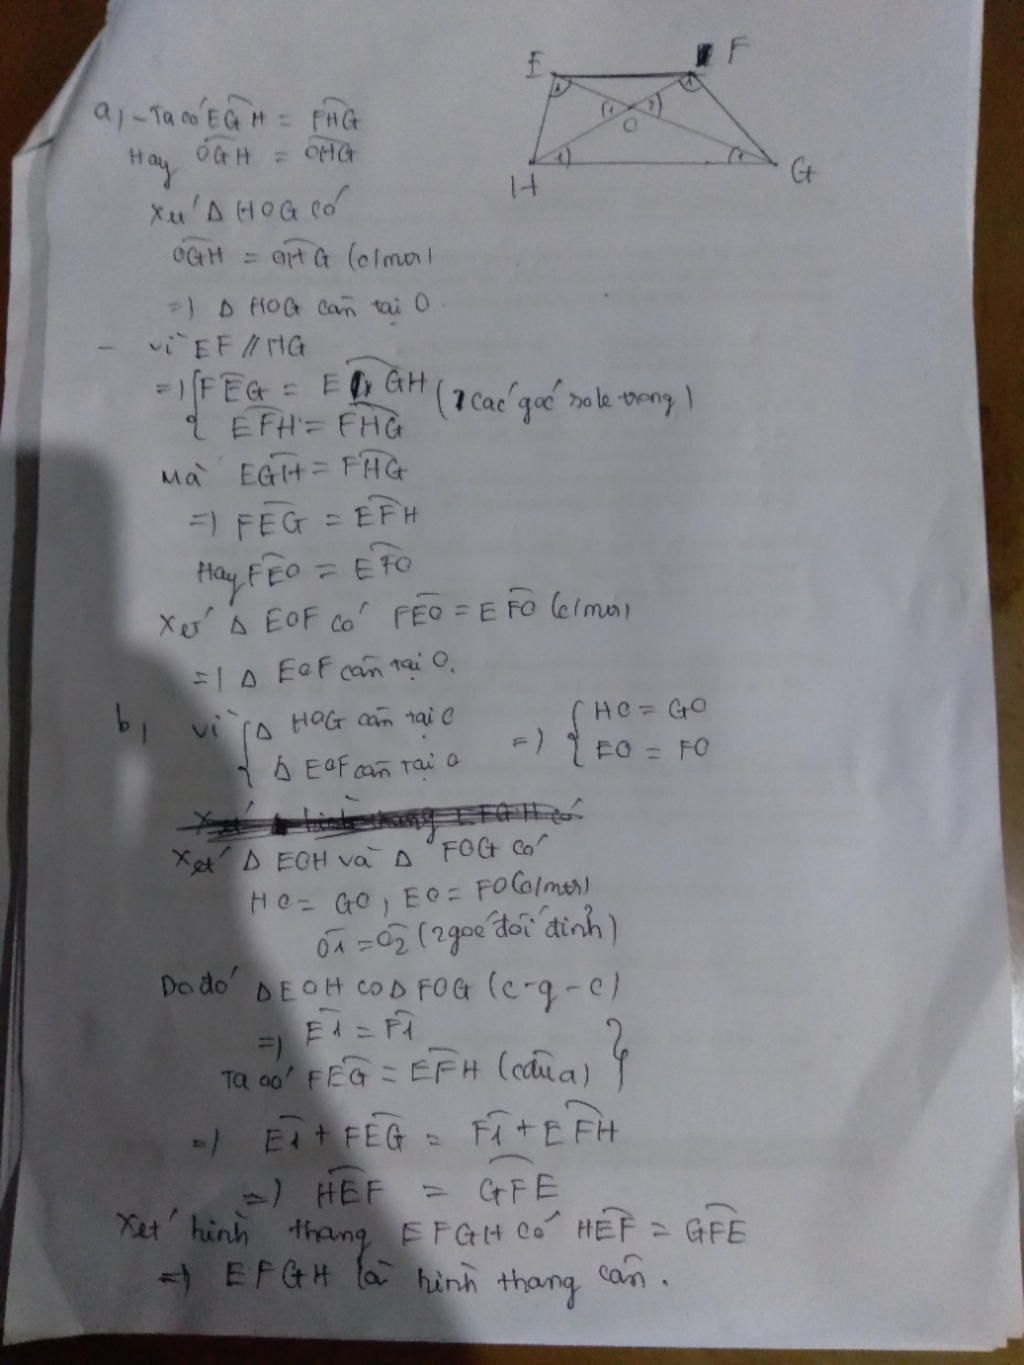 E F
O
H G
a, - Ta có EGH = FHG
Hay OGH = OHG
Xét Δ HOG có
OGH = OHG (c/mtr)
=) Δ HOG cân tại O.
- vì EF // HG
=) { FEG = EGH (2 các góc sole trong)
EFH = FHG
Mà EGH = FHG
=) FEG = EFH
Hay FEO = EFO
Xét Δ EOF có FEO = EFO (c/mtr)
=) Δ EOF cân tại O.
b, Vì { Δ HOG cân tại O =) { HO = GO
Δ EOF cân tại O EO = FO
Xét Δ EOH và Δ FOG có
HO = GO, EO = FO (c/mtr)
O1 = O2 (2 góc đối đỉnh)
Do đó Δ EOH co Δ FOG (c-g-c)
=) E1 = F1
Ta có FEG = EFH (câu a) }
=) E1 + FEG = F1 + EFH
=) HEF = GFE
Xét hình thang EFGH có HEF = GFE
=) EFGH là hình thang cân.